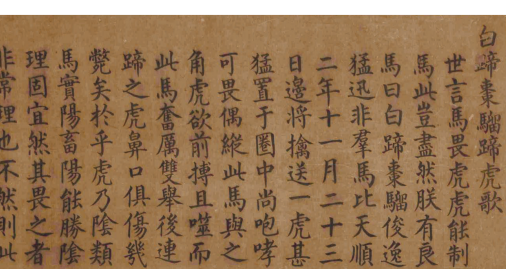 白蹄棗騮蹄虎歌
世言馬畏虎虎能制
馬此豈盡然朕有良
馬曰白蹄棗騮俊逸
猛迅非羣馬比天順
二年十一月二十三
日邊將擒送一虎甚
猛置于圈中尚咆哮
可畏偶縱此馬與之
角虎欲前搏且噬而
此馬奮厲雙舉後連
蹄之虎鼻口俱傷幾
斃矣於乎虎乃陰類
馬實陽畜陽能勝陰
理固宜然其畏之者
非常理也不然則此